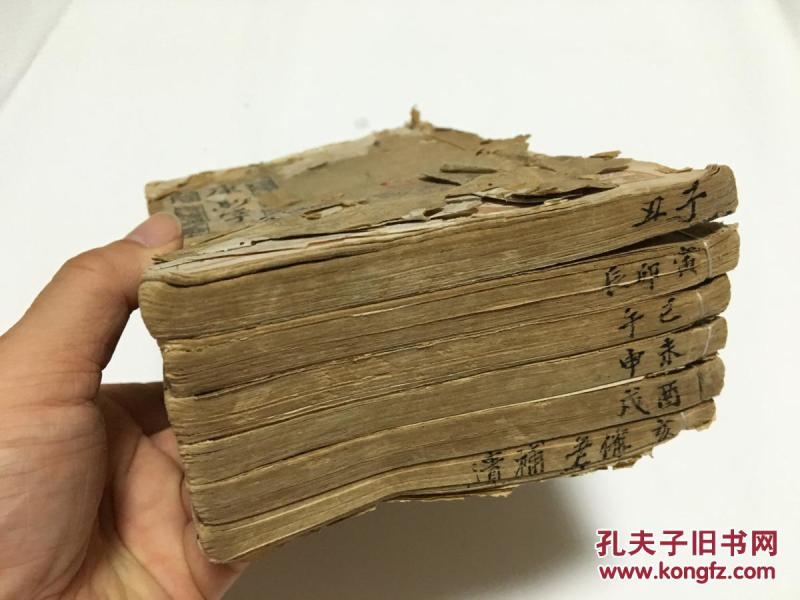 子丑
寅卯辰
巳午
未申
酉戌
亥備考補遺
孔夫子旧书网
www.kongfz.com